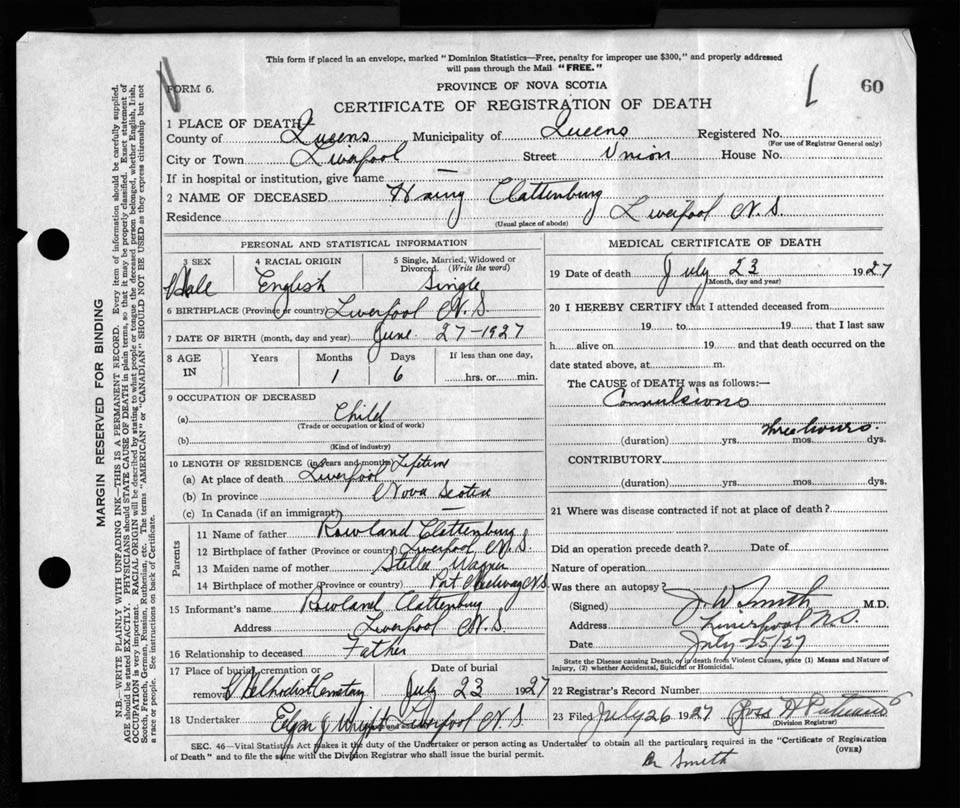 This form if placed in an envelope, marked "Dominion Statistics—Free, penalty for improper use $300," and properly addressed
will pass through the Mail "FREE."
FORM 6.
PROVINCE OF NOVA SCOTIA
60
CERTIFICATE OF REGISTRATION OF DEATH
1 PLACE OF DEATH
County of Queens Municipality of Queens Registered No.
(For use of Registrar General only)
City or Town Liverpool Street Union House No.
If in hospital or institution, give name —
2 NAME OF DECEASED Harry Clattenburg
Residence Liverpool N.S.
(Usual place of abode)
PERSONAL AND STATISTICAL INFORMATION
3 SEX 4 RACIAL ORIGIN 5 Single, Married, Widowed or
Divorced. (Write the word)
Male English Single
6 BIRTHPLACE (Province or country) Liverpool N.S.
7 DATE OF BIRTH (month, day and year) June 27-1927
8 AGE Years Months Days If less than one day,
IN 1 6 hrs. or min.
9 OCCUPATION OF DECEASED
(a) Child
(Trade or occupation or kind of work)
(b)
(Kind of industry)
10 LENGTH OF RESIDENCE (in years and months) Lifetime
(a) At place of death Liverpool
(b) In province Nova Scotia
(c) In Canada (if an immigrant) —
Parents
11 Name of father Rowland Clattenburg
12 Birthplace of father (Province or country) Liverpool N.S.
13 Maiden name of mother Stella Wagner
14 Birthplace of mother (Province or country) Port Medway N.S.
15 Informant's name Rowland Clattenburg
Address Liverpool N.S.
16 Relationship to deceased Father
17 Place of burial, cremation or Date of burial
removal Methodist Cemetary July 23 1927
18 Undertaker Edgar J Wright Liverpool N.S.
MEDICAL CERTIFICATE OF DEATH
19 Date of death July 23 1927
(Month, day and year)
20 I HEREBY CERTIFY that I attended deceased from
19 to 19 that I last saw
h alive on 19 and that death occurred on the
date stated above, at m.
The CAUSE of DEATH was as follows:—
Convulsions
three hours.
(duration) yrs. mos. dys.
CONTRIBUTORY
(duration) yrs. mos. dys.
21 Where was disease contracted if not at place of death?
Did an operation precede death? Date of
Nature of operation
Was there an autopsy?
(Signed) J. W Smith M.D.
Address Liverpool N.S.
Date July 25/27
State the Disease causing Death, or in death from Violent Causes, state (1) Means and Nature of
Injury, (2) whether Accidental, Suicidal or Homicidal.
22 Registrar's Record Number
23 Filed July 26 1927
(Division Registrar)
SEC. 46—Vital Statistics Act makes it the duty of the Undertaker or person acting as Undertaker to obtain all the particulars required in the "Certificate of Registration
of Death" and to file the same with the Division Registrar who shall issue the burial permit. (OVER)
Dr Smith
MARGIN RESERVED FOR BINDING
N.B.—WRITE PLAINLY WITH UNFADING INK—THIS IS A PERMANENT RECORD. Every item of information should be carefully supplied.
AGE should be stated EXACTLY. PHYSICIANS should STATE CAUSE OF DEATH in plain terms, so that it may be properly classified. Exact statement of
OCCUPATION is very important. RACIAL ORIGIN will be described by stating to what people or tongue the deceased person belonged, whether English, Irish,
Scotch, French, German, Russian, Ruthenian, etc. The terms "AMERICAN" or "CANADIAN" SHOULD NOT BE USED as they express citizenship but not
a race or people. See instructions on back of Certificate.